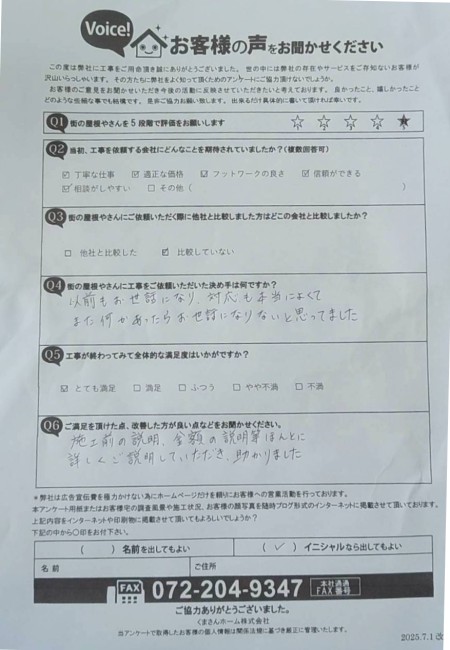 Voice!
お客様の声をお聞かせください
この度は弊社に工事をご用命頂き誠にありがとうございました。世の中には弊社の存在やサービスをご存知ないお客様が
沢山いらっしゃいます。その方たちに弊社をよく知って頂くためのアンケートにご協力頂けないでしょうか。
お客様のご意見をお聞かせいただき今後の活動に反映させていただきたいと考えております。良かったこと、嬉しかったこと
どのような些細な事でも結構です。是非ご協力お願い致します。出来るだけ具体的に書いて頂ければ幸いです。
Q1 街の屋根やさんを5段階で評価をお願いします ☆ ☆ ☆ ☆ ★
Q2 当初、工事を依頼する会社にどんなことを期待されていましたか?(複数回答可)
☑ 丁寧な仕事 ☑ 適正な価格 ☑ フットワークの良さ ☑ 信頼ができる
☑ 相談がしやすい □ その他( )
Q3 街の屋根やさんにご依頼いただく際に他社と比較しました方はどこの会社と比較しましたか?
□ 他社と比較した ☑ 比較していない
Q4 街の屋根やさんに工事をご依頼いただいた決め手は何ですか?
以前もお世話になり、対応も本当によくて
また何かあったらお世話になりないと思ってました
Q5 工事が終わってみて全体的な満足度はいかがですか?
☑ とても満足 □ 満足 □ ふつう □ やや不満 □ 不満
Q6 ご満足を頂けた点、改善した方が良い点などをお聞かせください。
施工前の説明、金額の説明等ほんとに
詳しくご説明していただき、助かりました
*弊社は広告宣伝費を極力かけない為にホームページだけを頼りにお客様への営業活動を行っております。
本アンケート用紙またはお客様宅の調査風景や施工状況、お客様の顔写真を随時ブログ形式のインターネットに掲載させて頂いております。
上記内容をインターネットや印刷物に掲載させて頂いてもよろしいでしょうか?
下記の中から〇印をお付下さい。
( ) 名前を出してもよい ( ✓ ) イニシャルなら出してもよい
名前 ご住所
FAX 072-204-9347 本社直通 FAX番号
ご協力ありがとうございました。
くまさんホーム株式会社
当アンケートで取得したお客様の個人情報は関係法規に基づき厳正に管理いたします。
2025.7.1 改